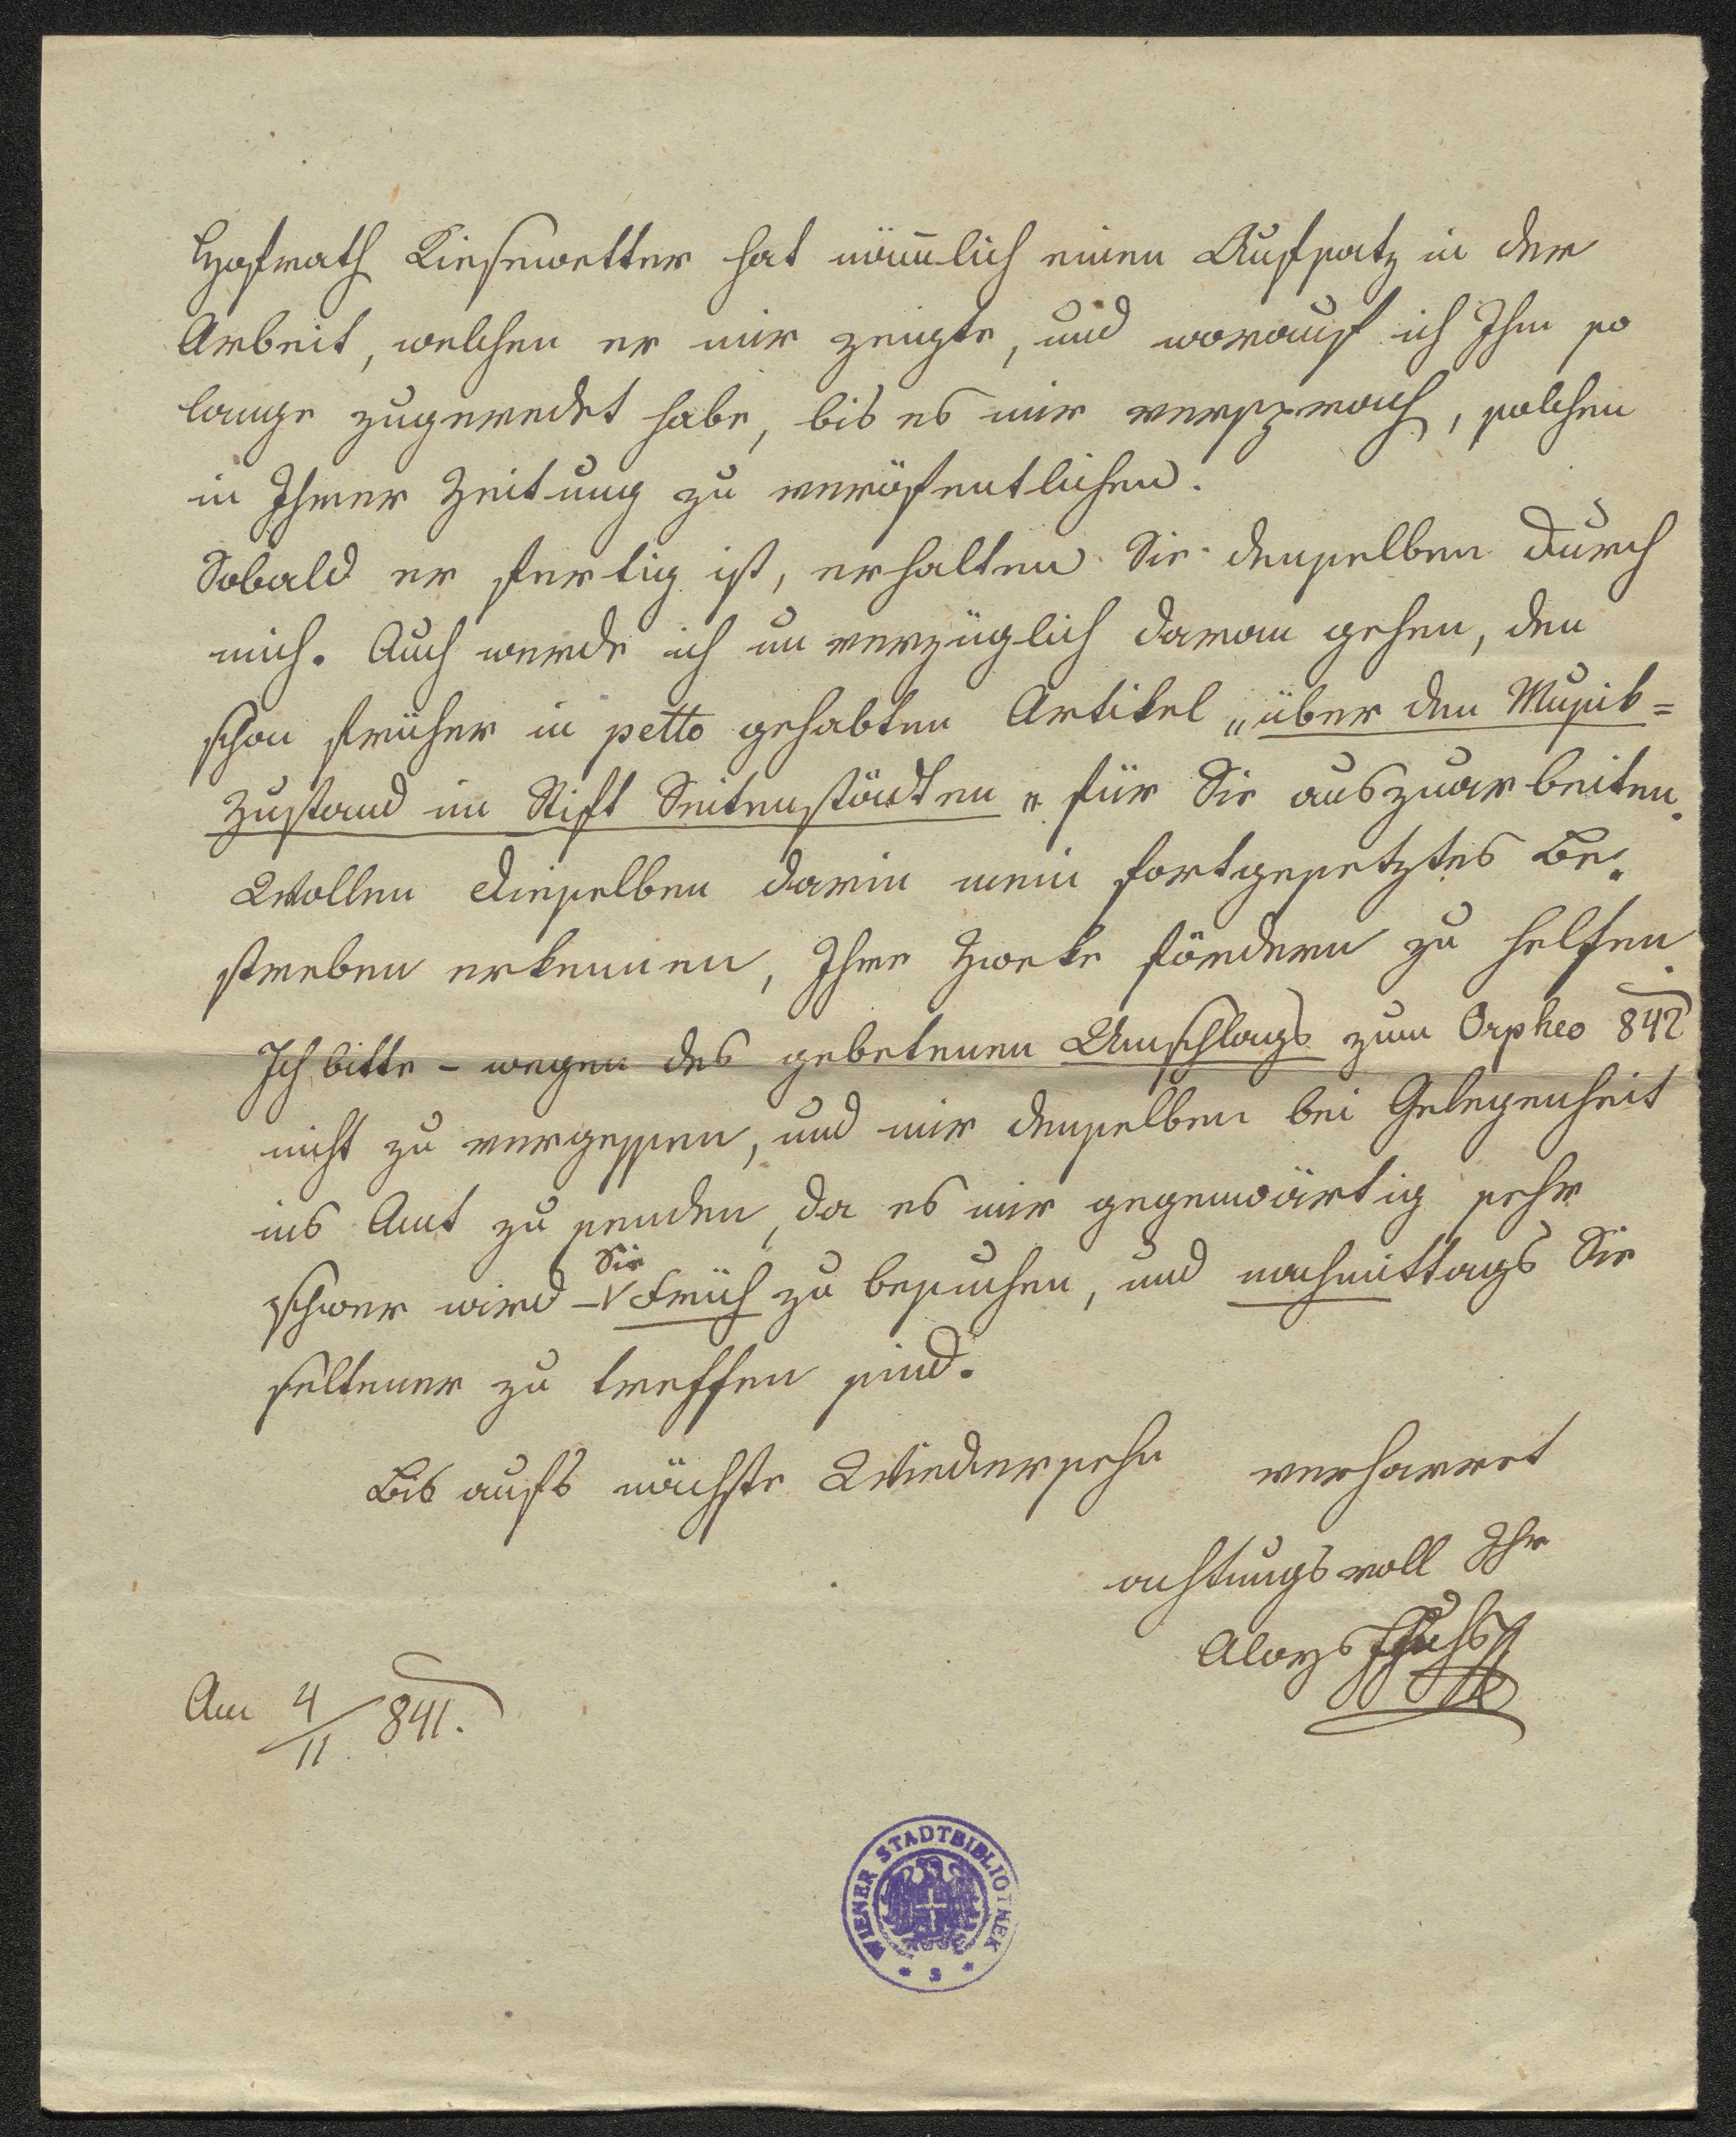 Hofrath Kiesewetter hat nämlich einen Aufsatz in der
Arbeit, welchen er mir zeigte, und worauf ich Ihm so
lange zugeredet habe, bis es mir versprach, solchen
in Ihrer Zeitung zu veröfentlichen.
Sobald er fertig ist, erhalten Sie denselben durch
mich. Auch werde ich unverzüglich daran gehen, den
schon früher in petto gehabten Artikel „über den Musik=
zustand im Stift Seitenstädten“ für Sie auszuarbeiten.
Wollen dieselben darin mein fortgesetztes Be=
streben erkennen, Ihre Zweke fördern zu helfen.
Ich bitte – wegen des gebetenen Umschlags zum Orpheo 842
nicht zu vergessen, und mir denselben bei Gelegenheit
ins Amt zu senden, da es mir gegenwärtig sehr
schwer wird – Sie Früh zu besuchen, und nachmittags Sie
seltener zu treffen sind.
Bis aufs nächste Wiedersehn verharret
achtungsvoll Ihr
Aloys Fuchs
Am 4/11 841.
WIENER STADTBIBLIOTHEK
* 2 *